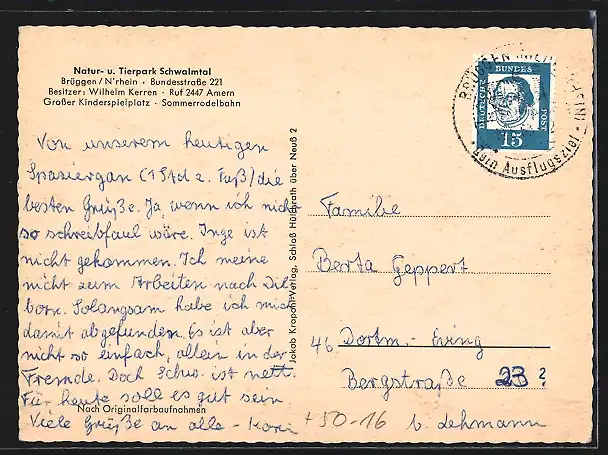 Natur- u. Tierpark Schwalmtal
Brüggen / N'rhein · Bundesstraße 221
Besitzer: Wilhelm Kerren · Ruf 2447 Amern
Großer Kinderspielplatz · Sommerrodelbahn
Von unserem heutigen
Spaziergan (1 Std z. Fuß) die
besten Grüße. Ja, wenn ich nicht
so schreibfaul wäre. Inge ist
nicht gekommen. Ich meine
nicht zum Arbeiten nach Dil
born. Solangsam habe ich mich
damit abgefunden. Es ist aber
nicht so einfach, allein in der
Fremde. Doch Schw. ist nett.
Für heute soll es gut sein
Viele Grüße an alle - Karin
Nach Originalfarbaufnahmen
Jakob Krapohl-Verlag, Schloß Hülchrath über Neuß 2
BRÜGGEN (NIEDERRHEIN)
Dein Ausflugsziel
DEUTSCHE BUNDESPOST
15
Familie
Berta Geppert
46 Dortm.- Eving
Bergstraße 23 ?
b. Lehmann
+50-16